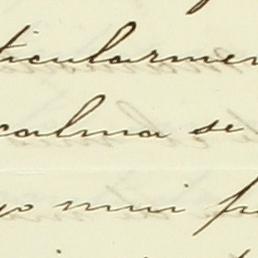 ticularmen
calma se
yo mui p